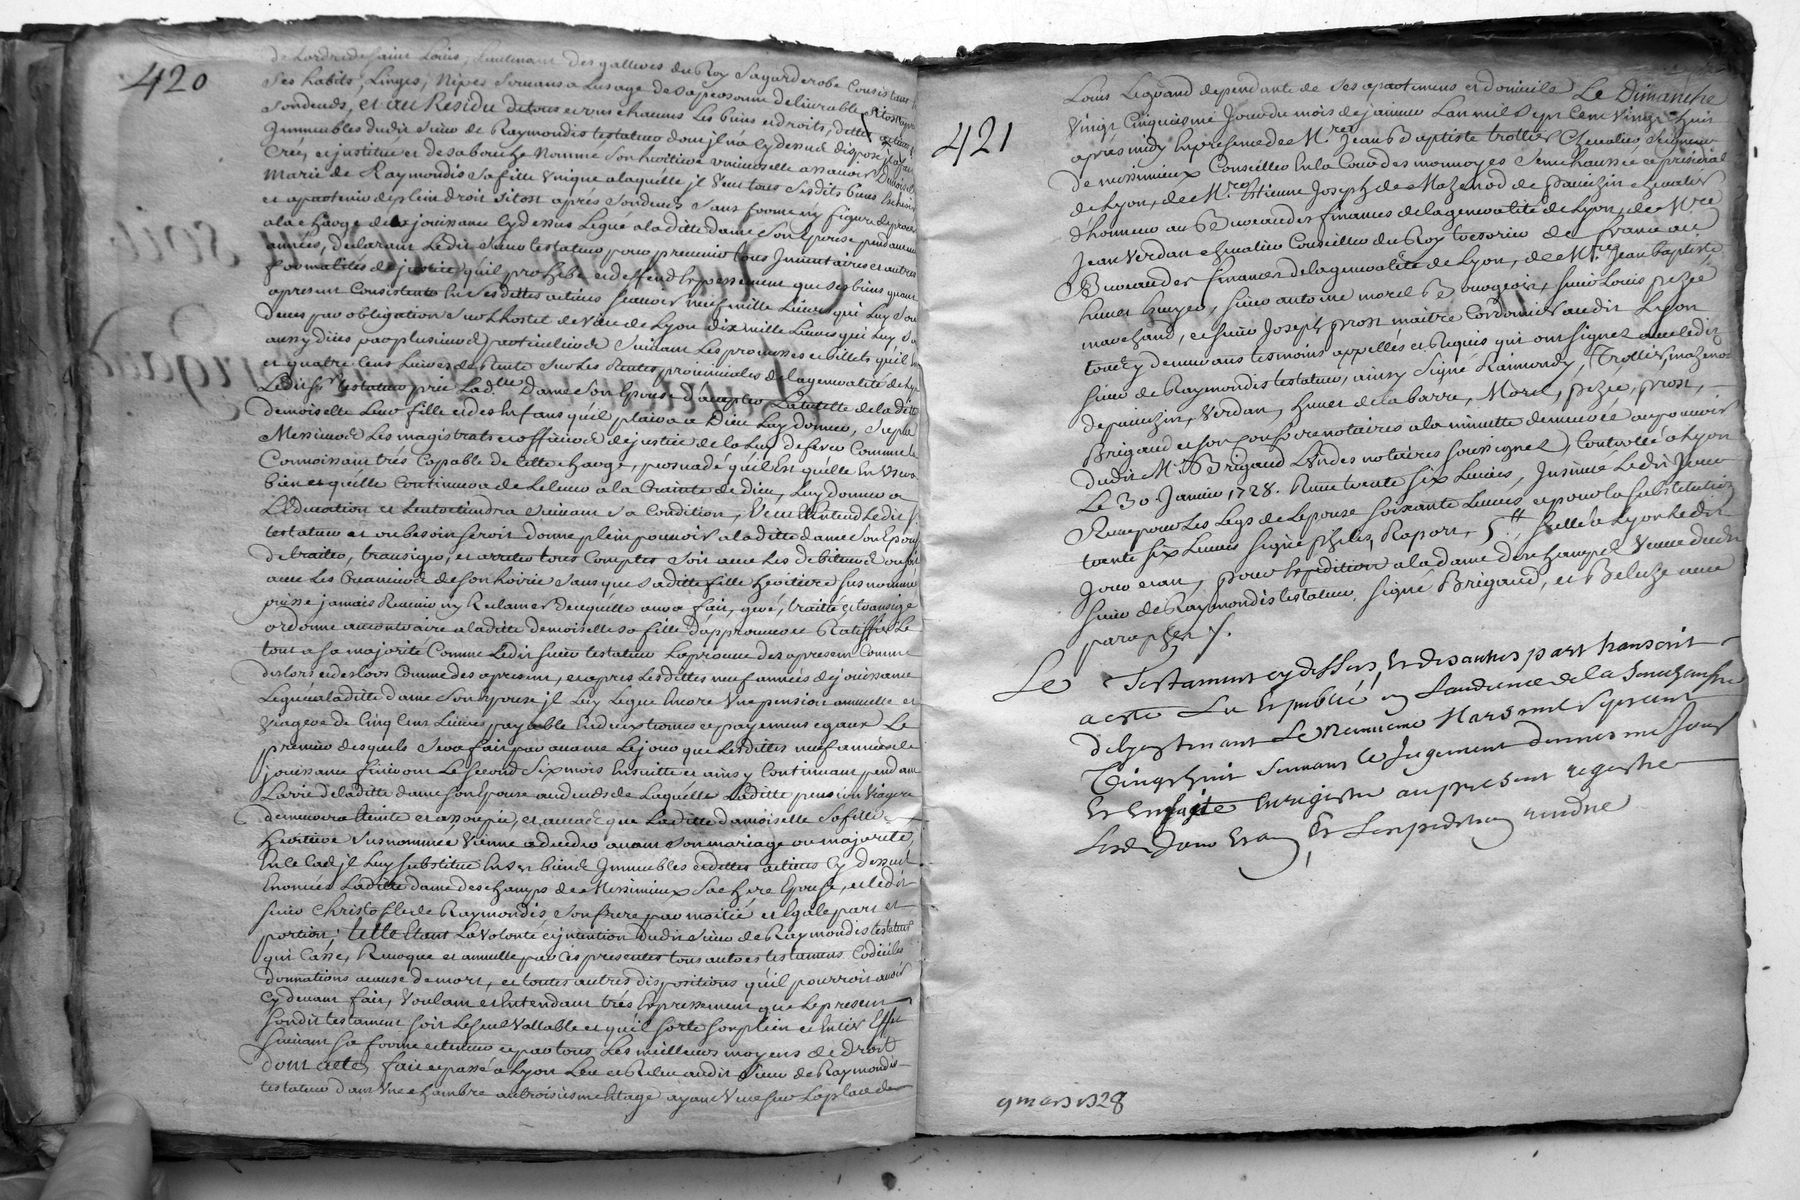 420
de Lordre de Saint Louis, Lieutenant des galleres du Roy Sa garderobe Consistant En
Ses habits, Linges, Nipes Servans a Lusage de sa personne delivrable sitost apres
Son deceds, et au Residu de tous et uns chacuns Les biens et droits, dettes actives &
Immeubles dudit Sieur de Raymondis testateur dont jl n'a cy dessus disposé jl a fait
Créé, et jnstitué et de sa bouche Nommé Son heritiere universelle assavoir
Marie de Raymondis Sa fille Unique a laquelle jl Veut tous Sesdits biens
et apartenir de plein droit sitost aprés Son deceds Sans forme ny figure de procés
a la charge de la jouissance Cy dessus Legué a laditte dame Son Epouse pendant neuf
années, declarant Ledit Sieur testateur pour prevenir tous Jnventaires et autres
formalités de justice qu'il prohibe et deffend Expressement que Ses biens quant
apresent Consistent En Ses dettes actives scavoir neuf mille Livres qui Luy Sont
deues par obligation Sur Lhostel de Ville de Lyon dix mille Livres qui Luy Sont
aussy dues par plusieurs particuliers Suivant Les promesses et billets qu'il
et quatre Cens Livres de Rente Sur Les Rentes provinciales de la generalité de Lyon
Ledit Sr testateur prie Ladte Dame Son Epouse d'accepter La tutelle de laditte
demoiselle Leur fille et des Enfans qu'il plaira a Dieu Luy donner, Suplie
Messieurs Les magistrats et officiers de justice de la Luy deferer Comme la
Connoissant trés Capable de Cette charge, persuadé qu'il Est qu'elle En Usera
bien et qu'elle Continuera de Lelever a la Crainte de Dieu, Luy donnera
L'Education et Lentretiendra Suivant Sa Condition, Veut et Entend Ledit Sr
testateur et ou besoin seroit donne plein pouvoir a laditte dame Son Epouse
de traiter, transiger, et arreter tous Comptes Soit avec Les debiteurs ou soit
avec Les Creanciers de Son hoirie Sans que Saditte fille heritiere Susnommé
puisse jamais Revenir ny Reclamer de ce qu'elle aura fait, geré, traitté et transigé
ordonne au contraire a laditte demoiselle Sa fille d'approuver et Ratiffier Le
tout a Sa majorité Comme Ledit Sieur testateur Laprouve des apresent Comme
des lors et des lors Comme des apresent, et apres Lesdittes neuf années de jouissance
Legué a laditte dame Son Epouse jl Luy Legue Encore Une pension annuelle et
Viagere de Cinq Cens Livres payable En deux termes et payemens egaux Le
premier desquels Sera fait par avance Le jour que Lesdittes neuf années de
jouissance finiront Le second Six mois Ensuitte et ainsy Continuant pendant
La vie de laditte dame Son Epouse au deceds de Laquelle Laditte pension Viagere
demeurera Eteinte et assoupie, et au Cas que Laditte demoiselle Sa fille
Heritiere Susnommée Vienne a deceder avant Son mariage ou majorité,
En Ce Cas jl Luy Substitue En Ses biens Immeubles et dettes actives Cy dessus
Enoncées Laditte dame deschamps de Messimieux Sa chere Epouse, et ledit
Sieur Christofle de Raymondis Son frere par moitié, et Egale part et
portion; telle Etant La Volonté et jntention dudit Sieur de Raymondis testateur
qui Casse, Revoque et annulle par Ces presentes tous autres testamens Codiciles
donnations a cause de mort, et toutes autres dispositions qu'il pourroit avoir
Cy devant fait, Voulant et Entendant trés Expressement que Le present
Sondit testament soit Le seul Vallable et qu'il sorte son plein et Entier Effet
suivant Sa forme et teneur et par tous Les meilleurs moyens de droit
dont acte, fait et passé a Lyon Leu et Releu audit Sieur de Raymondis
testateur dans Une chambre au troisieme Etage ayant Veüe Sur La place de
421
Louis Legrand dependante de Ses apartemens et domicile Le Dimanche
Vingt Cinquiesme Jour du mois de janvier Lan mil Sept Cent Vingt huit
apres midy En presence de Mre Jean Baptiste trollier Chevalier Seigneur
de messimieux Conseiller En la Cour des monnoyes Senechaussée et presidial
de Lyon, de Mre Estienne Joseph de Mazenod de pavezin chevalier
d'honneur au Bureau des finances de la generalité de Lyon, de Mre
Jean Verdan chevalier Conseiller du Roy tresorier de france au
Bureau des finances de la generalité de Lyon, de Mre Jean baptiste
Sieur antoine morel Bourgeois, Sieur Louis pezée
marchand, et Sieur Joseph prost maitre Cordonnier audit Lyon
tous Cy demeurans tesmoins appelles et Requis qui ont signez avec ledit
Sieur de Raymondis testateur, ainsy Signé Raimondy, Trollier, mazenod
de pavezin, Verdan, de la barre, Morel, pezée, prost,
Brigaud et son Confrere notaires a la minutte demeurée au pouvoir
dudit Me Brigaud L'un des notaires soussignez, Controllé a Lyon
Le 30 Janvier 1728. Reçu trente six Livres, Jnsinué Ledit Jour
Reçu pour Les Legs de Lepouse soixante Livres et pour la substitution
trente six Livres signé Raport, 5tt, scellé a Lyon Ledit
Jour et an, pour Expedition a la dame Deschamps Veuve dudit
Sieur de Raymondis testateur, signé Brigaud, et Beluze avec
paraphes /.
Le Testament cy dessus, Et des autres part transcrit
a esté Lu Et publié en Laudience de la Senechaussée
de Lyon tenant Le Neuvieme Mars mil Sept cent
Vingt huit suivant Le Jugement dernier
Et Ensuite Enregistré au present registre
Lesdits Jour Et an, Et Lexpedition rendue
9 mars 1728